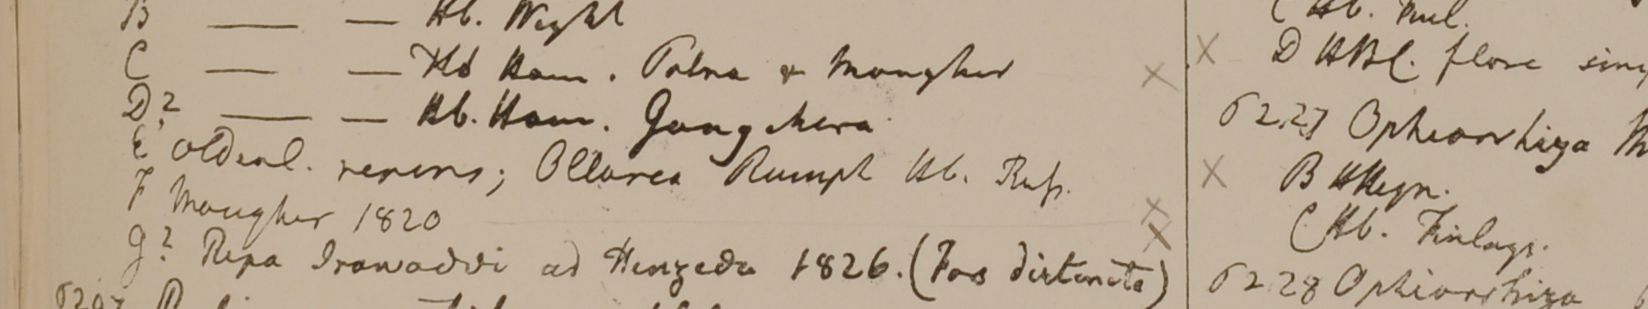 B — — Hb. Wight
C — — Hb Ham. Patna & Mongher
D? — — Hb. Ham. Gongachora
E oldenl. repens; Ollarea Rumph Hb. Rufs.
F Mongher 1820
g? Ripa Irawaddi ad Henzeda 1826. (Fors distincta)
C Hb. Finl.
D HBC. flore
6227 Ophiorrhiza
B HHeyn.
C Hb. Finlays.
6228 Ophiorrhiza